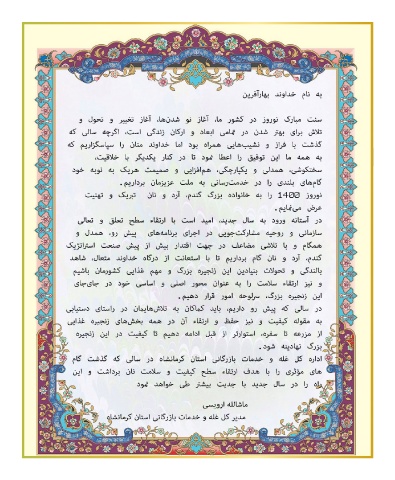 به نام خداوند بهارآفرین
سنت مبارک نوروز در کشور ما، آغاز نو شدن‌ها، آغاز تغییر و تحول و
تلاش برای بهتر شدن در تمامی ابعاد و ارکان زندگی است، اگرچه سالی که
گذشت با فراز و نشیب‌هایی همراه بود اما خداوند منان را سپاسگزاریم که
به همه ما این توفیق را اعطا نمود تا در کنار یکدیگر با خلاقیت،
سختکوشی، همدلی و یکپارچگی، هم‌افزایی و صمیمت هریک به نوبه خود
گام‌های بلندی را در خدمت‌رسانی به ملت عزیزمان برداریم.
نوروز 1400 را به خانواده بزرگ گندم، آرد و نان تبریک و تهنیت
عرض می‌نمایم.
در آستانه ورود به سال جدید، امید است با ارتقاء سطح تعلق و تعالی
سازمانی و روحیه مشارکت‌جویی در اجرای برنامه‌های پیش رو، همدل و
همگام و با تلاشی مضاعف در جهت اقتدار بیش از پیش صنعت استراتژیک
گندم، آرد و نان گام برداریم تا با استعانت از درگاه خداوند متعال، شاهد
بالندگی و تحولات بنیادین این زنجیره بزرگ و مهم غذایی کشورمان باشیم
و نیز ارتقاء سلامت را به عنوان محور اصلی و اساسی خود در جای‌جای
این زنجیره بزرگ، سرلوحه امور قرار دهیم.
در سالی که پیش رو داریم، باید کماکان به تلاش‌هایمان در راستای دستیابی
به مقوله کیفیت و نیز حفظ و ارتقاء آن در همه بخش‌های زنجیره غذایی
از مزرعه تا سفره، استوارتر از قبل ادامه دهیم تا کیفیت در این زنجیره
بزرگ نهادینه شود.
اداره کل غله و خدمات بازرگانی استان کرمانشاه در سالی که گذشت گام
های مؤثری را با هدف ارتقاء سطح کیفیت و سلامت نان برداشت و این
راه را در سال جدید با جدیت بیشتر طی خواهد نمود
ماشااله ارویسی
مدیر کل غله و خدمات بازرگانی استان کرمانشاه